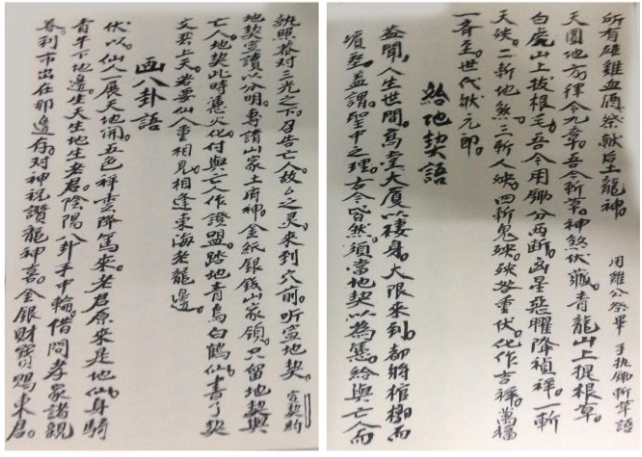 所有雄雞血酒祭献后土龍神。
用雞公祭畢手执鋤斬草語
天圓地方律令九章。吾今斬草。神煞伏藏。青龍山上提根草。
白虎山上拔根毛。吾今用鋤分两断。凶星惡曜降禎祥。一斬
天殃。二斬地煞。三斬人殃。四斬鬼殃。殃重伏。化作吉祥。萬福
一齊至。世代狀元郎。
給地契語
蓋聞。人生世間。高堂大厦以棲身。大限來到。都將棺槨而
塟。盖謂。聖中之理。古今皆然。須當地契以為憑。給與亡人而
執照。对三光之下。召告亡人故ム之灵。來到穴前。听宣地契。
宣契約
地契宣讀以分明。專請山家土府神。金紙銀錢山家領。只留地契與
亡人。地契此時憑火化。付與亡人作證盟。踏地青烏白鶴仙。書了契
文登上天。若要仙人重相見。相逢東海老龍邊。
画八卦語
伏以。仙人一展天地開。五色祥雲降來。老君原來是地仙。身騎
青牛下地邊。生天生地生老君。陰陽八卦手中輪。借問孝家諸親
眷。利市出在那邊存。对神祝讚龍神喜。金銀財寶賜東君。